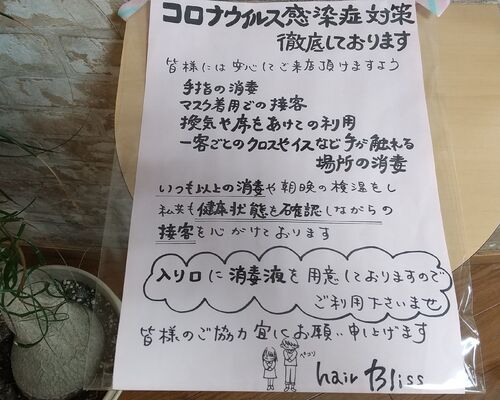 コロナウイルス感染症対策
徹底しております
皆様には安心してご来店頂けますよう
手指の消毒
マスク着用での接客
換気や席をあけての利用
一客ごとのクロスやイスなど手が触れる
場所の消毒
いつも以上の消毒や朝晩の検温をし
私共も健康状態を確認しながらの
接客を心がけております
入り口に消毒液を用意しておりますので
ご利用下さいませ
皆様のご協力宜しくお願い申し上げます
ペコリ
hair Bliss